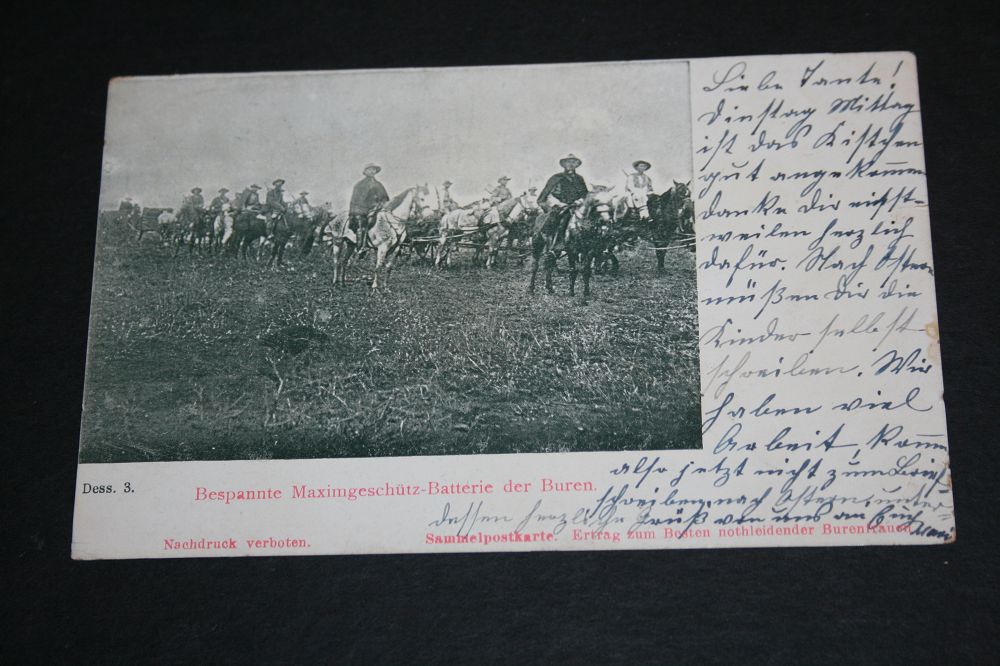 Liebe Tante!
Dinstag Mittag
ist das Kistchen
gut angekommen
danke Dir einst-
weilen herzlich
dafür. Nach Ostern
müssen Dir die
Kinder selbst
schreiben. Wir
haben viel
Arbeit, komm
also jetzt nicht zum Brief
schreiben, nach Ostern, unter-
dessen herzliche Grüß von uns an Euch
Dess. 3.
Bespannte Maximgeschütz-Batterie der Buren.
Nachdruck verboten.
Sammelpostkarte. Ertrag zum Besten nothleidender Burenfrauen.